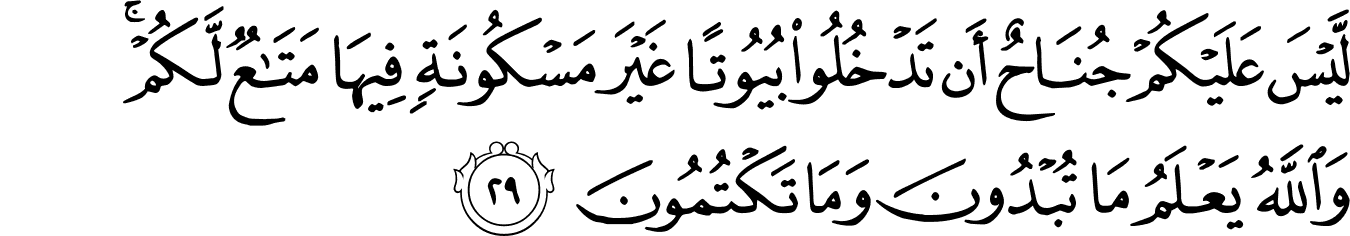 لَّيْسَ عَلَيْكُمْ جُنَاحٌ أَن تَدْخُلُوا۟ بُيُوتًا غَيْرَ مَسْكُونَةٍ فِيهَا مَتَـٰعٌ لَّكُمْ ۚ
وَٱللَّهُ يَعْلَمُ مَا تُبْدُونَ وَمَا تَكْتُمُونَ ٢٩